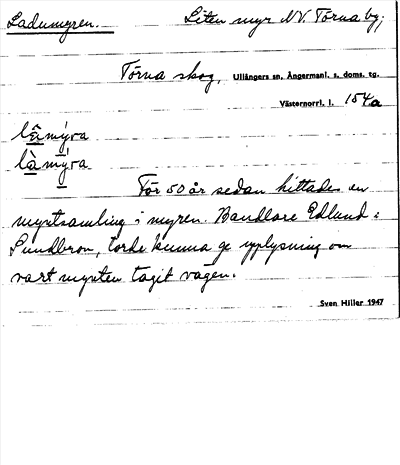 Ladumyren. Liten myr N.V. Törna by;
Törna skog, Ullångers sn, Ångermanl. s. doms. tg.
Västernorrl. l. 154a
lâmýra
làmýra
För 50 år sedan hittades en
myntsamling i myren. Handlare Edlund i
Sundbron, torde kunna ge upplysning om
vart mynten tagit vägen.
Sven Hiller 1947